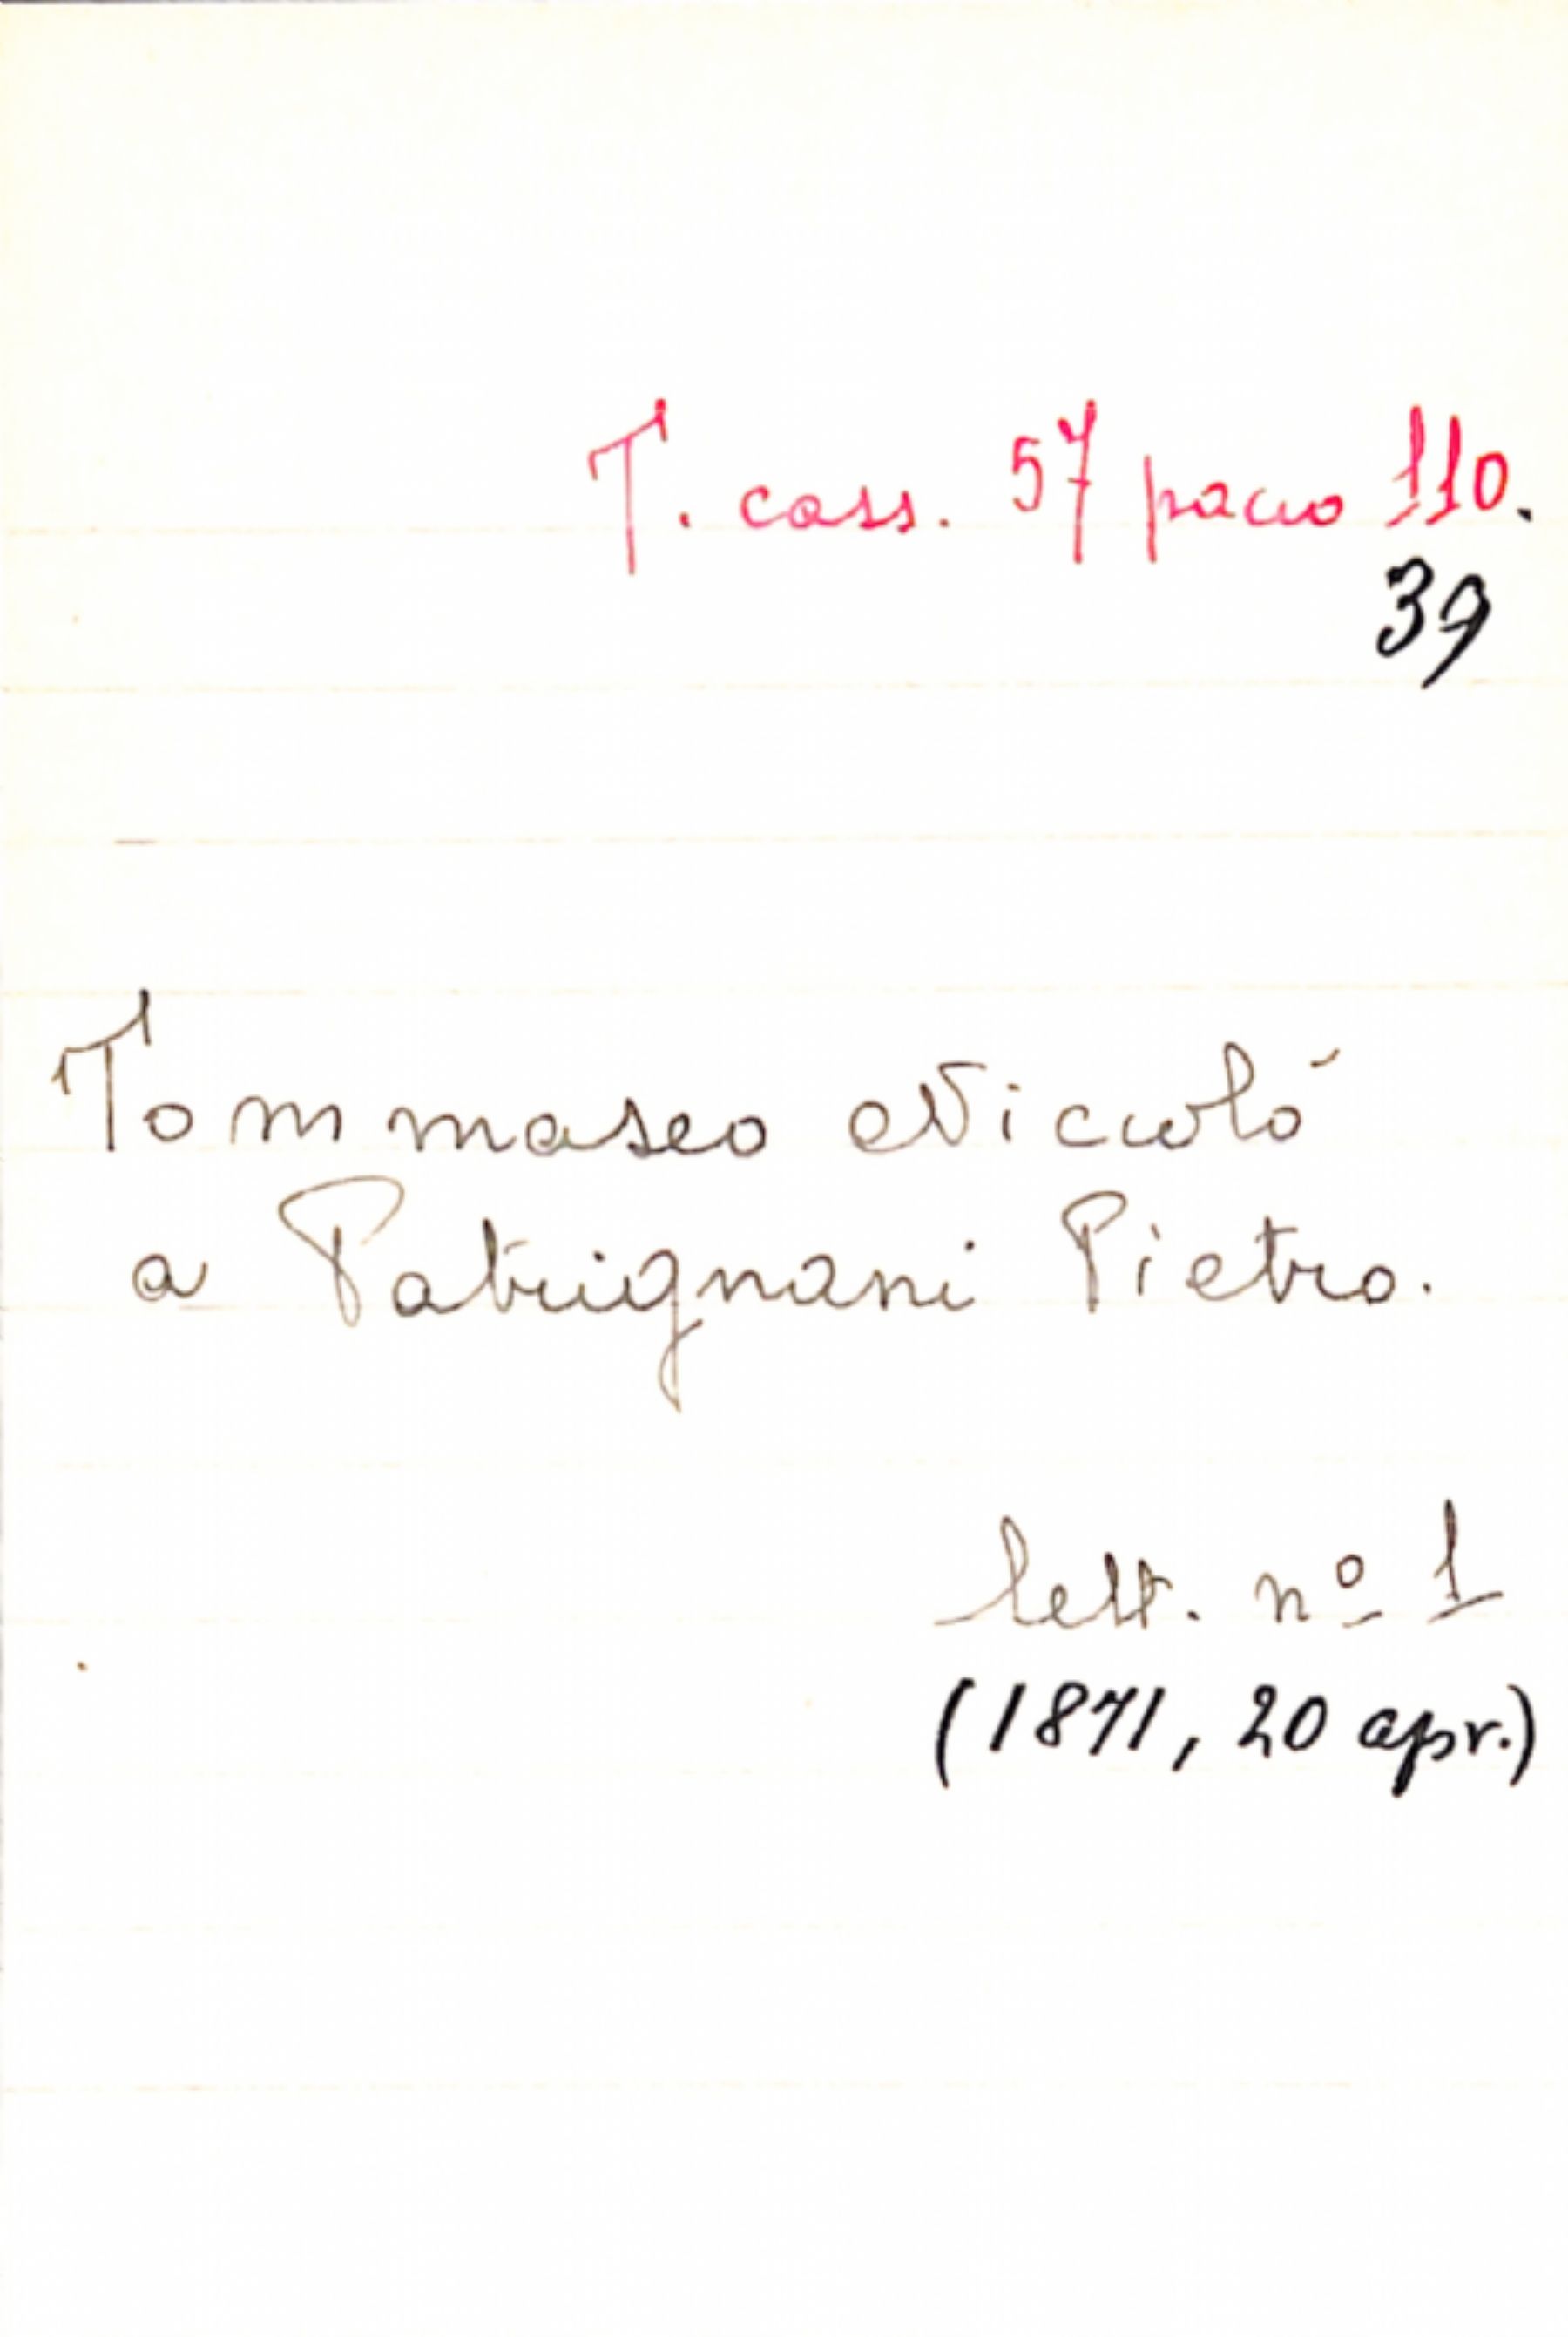 T. cass. 57 pacco 110.
39
Tommaseo Niccolò
a Patrignani Pietro.
lett. nº 1
(1871, 20 apr.)